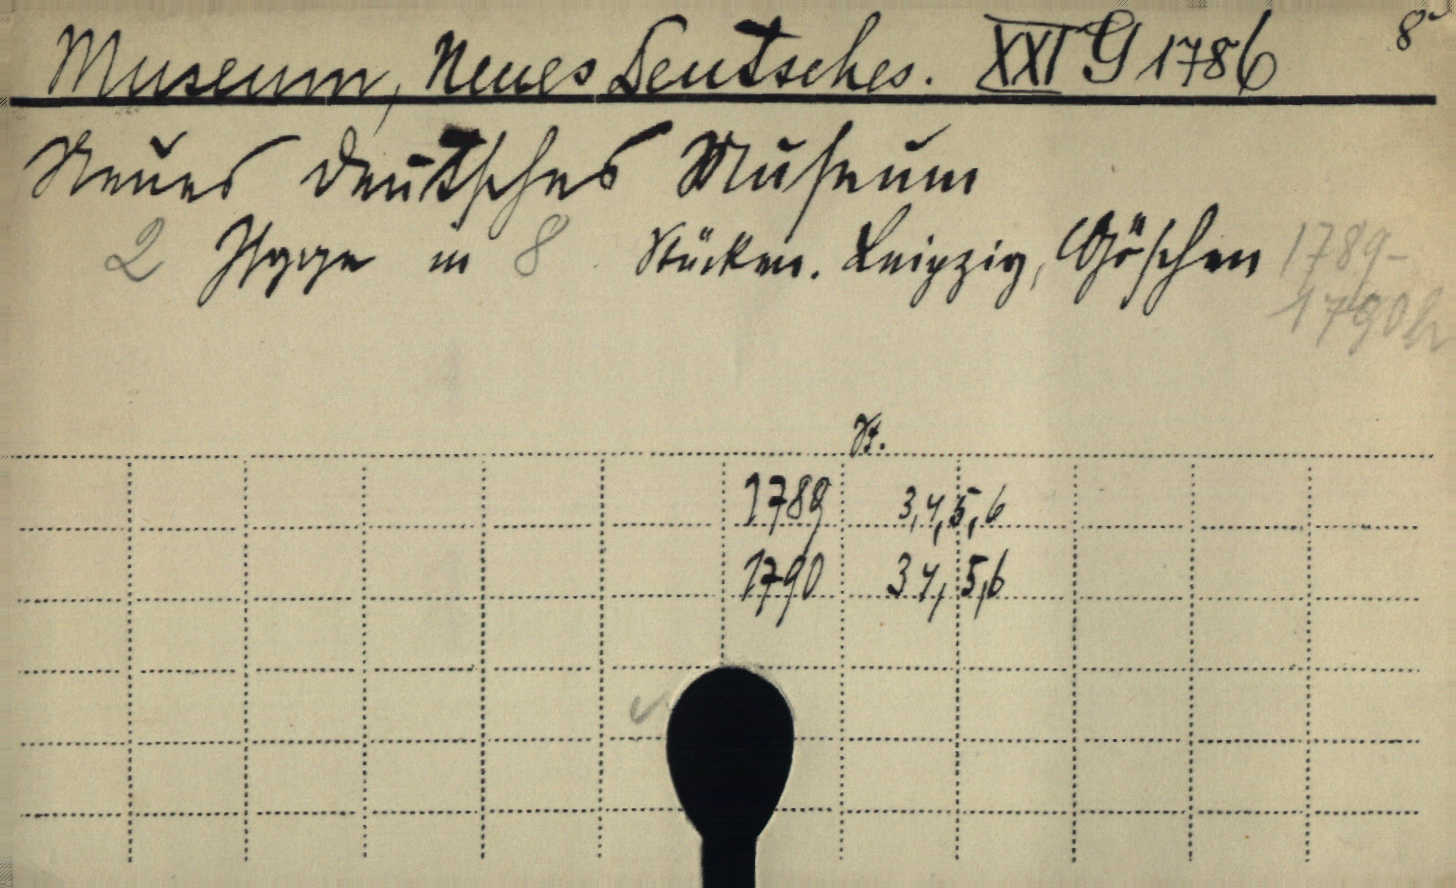 Museum, Neues Deutsches. XXI G 1786 8°
Neues deutsches Museum
2 Jhgge in 8 Stücken. Leipzig, Göschen 1789-
1790
St.
1789 3,4,5,6
1790 3 4, 5,6